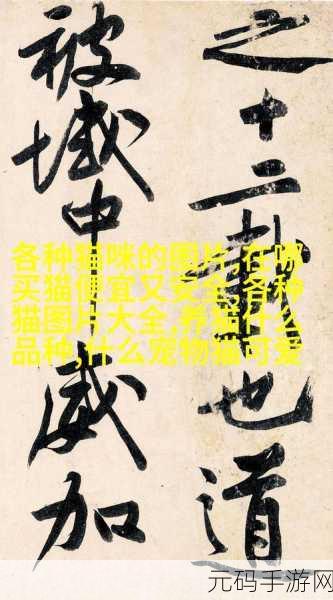 之十二也道
被域中威加
各种猫咪的图片,在哪
买猫便宜又安全,各种
猫图片大全,养猫什么
品种,什么宠物猫可爱
元码手游网